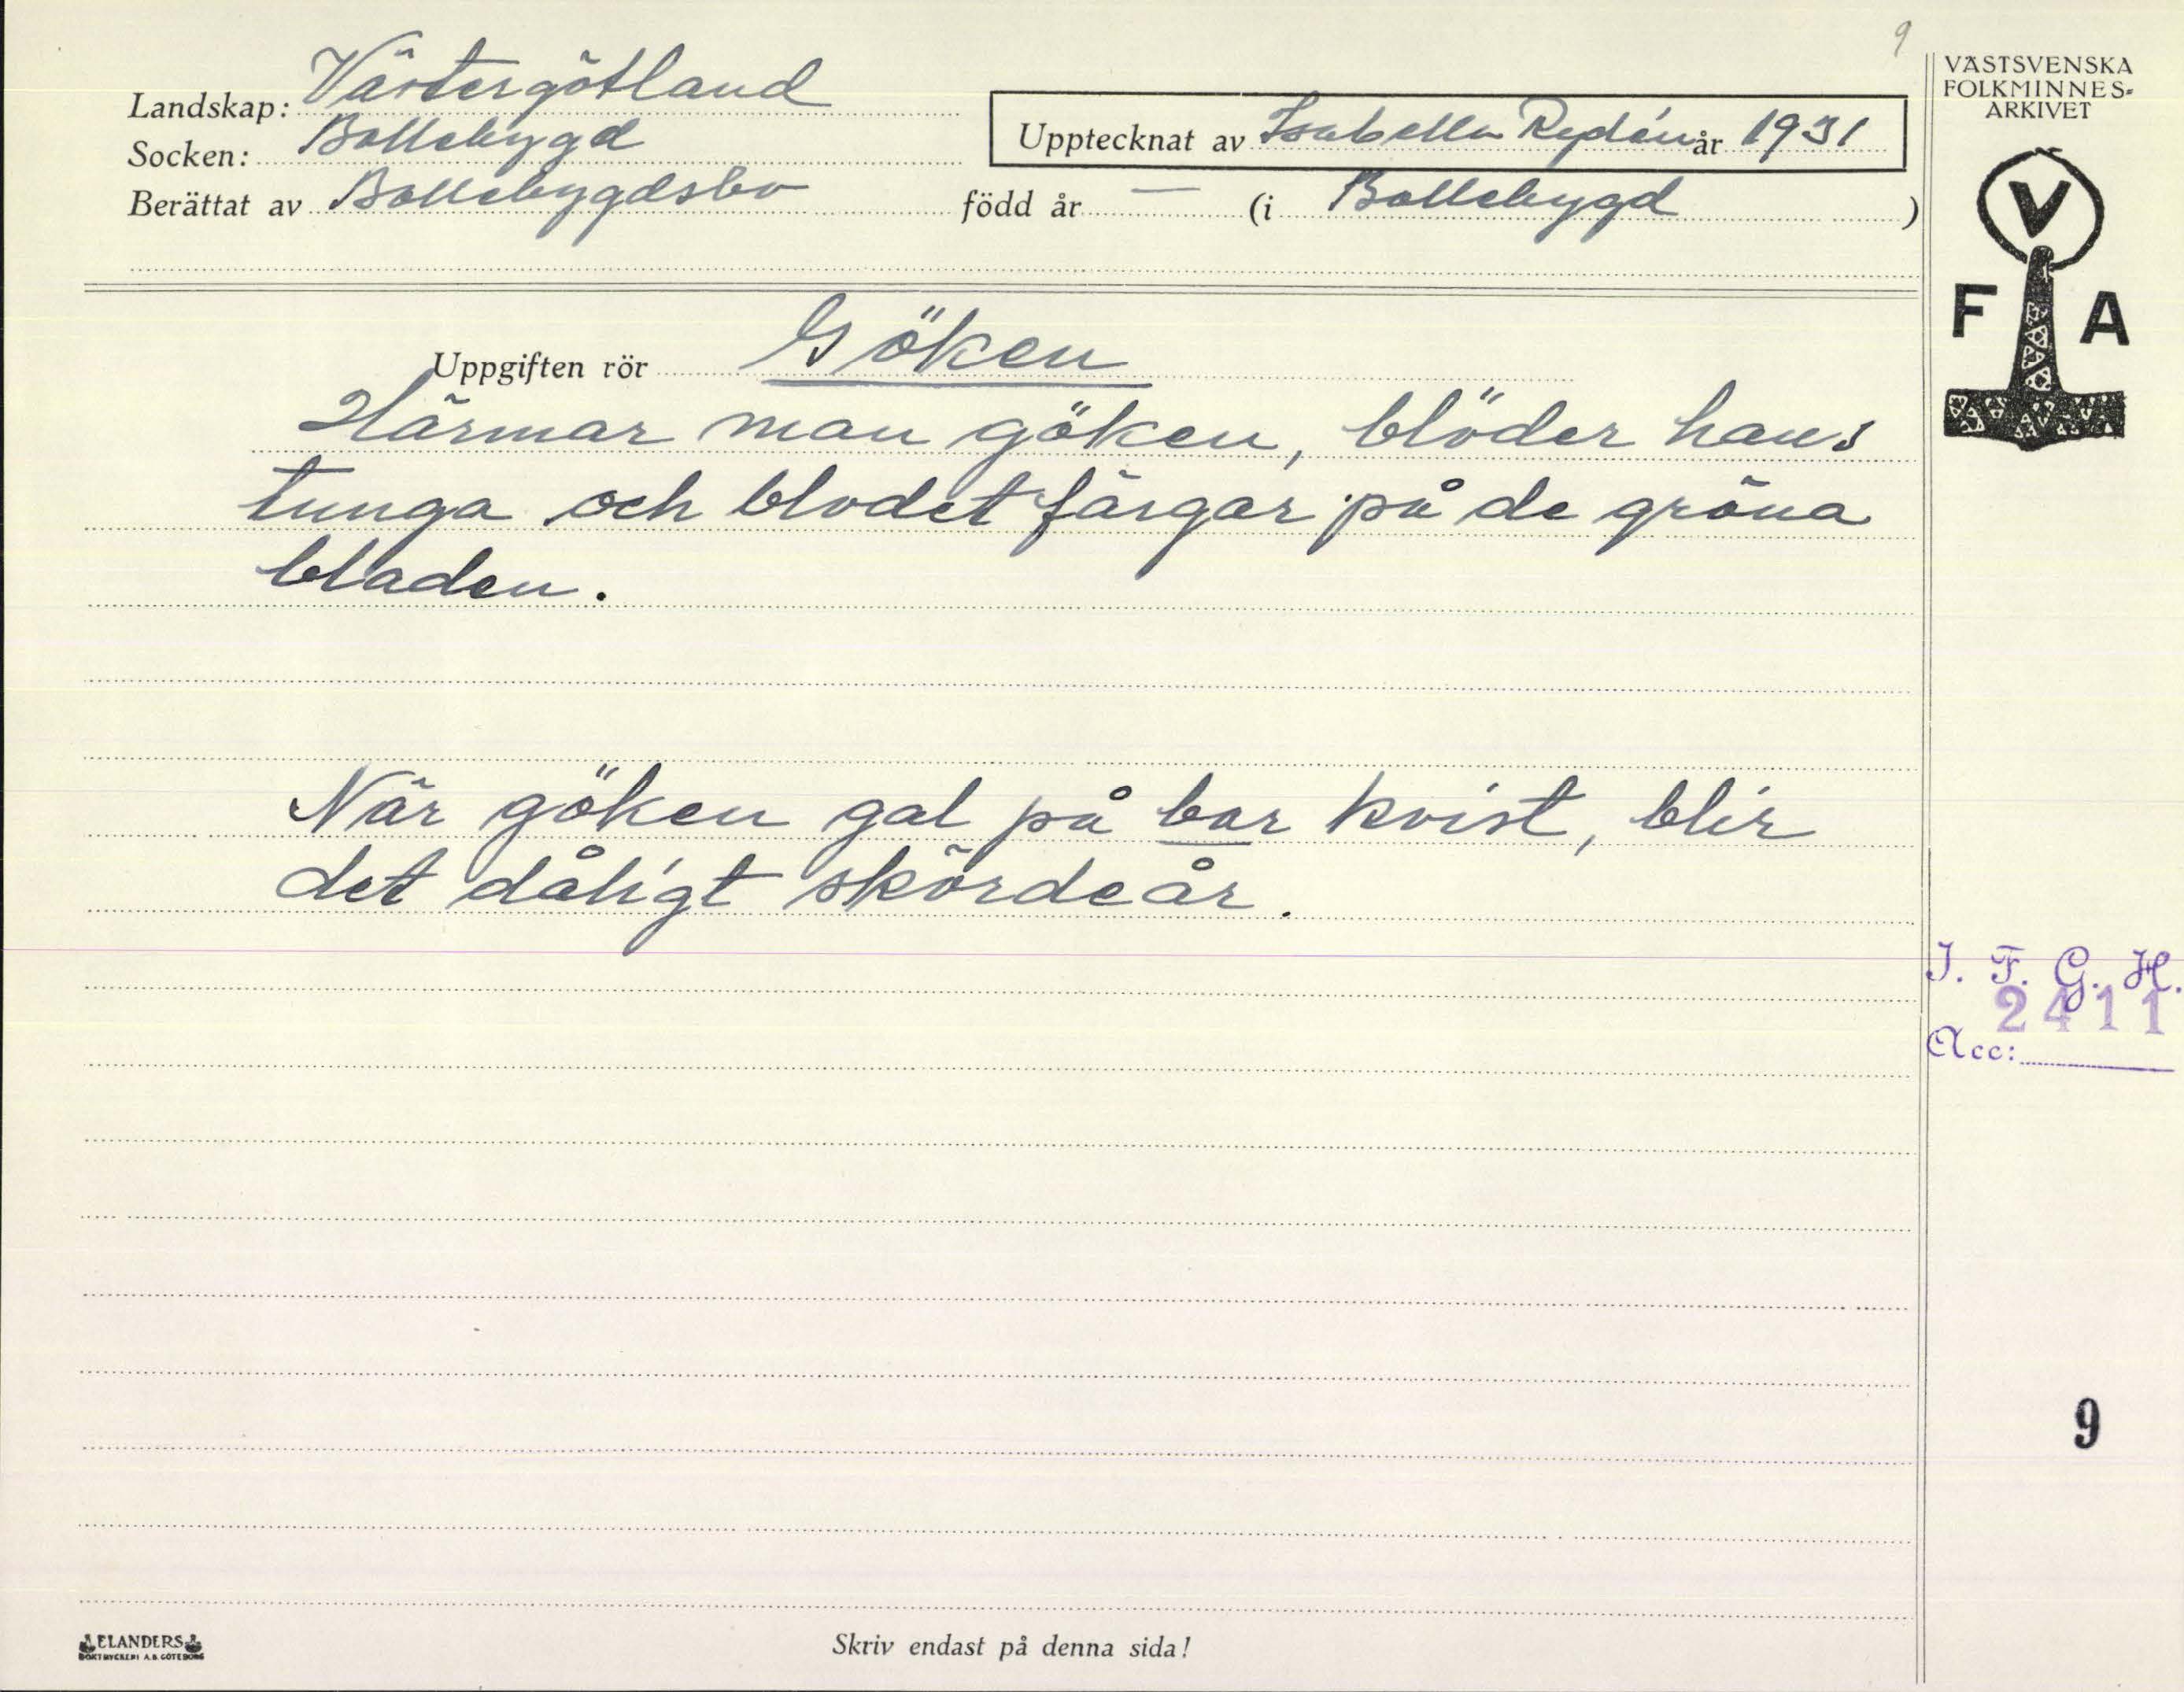 9
Landskap: Västergötland
Socken: Bollebygd
Upptecknat av Isabella Rydén år 1931
Berättat av Bollebygdsbo född år — (i Bollebygd )
VÄSTSVENSKA
FOLKMINNES-
ARKIVET
V
F A
Uppgiften rör Göken
Härmar man göken, blöder hans
tunga och blodet färgar på de gröna
bladen.
När göken gal på bar kvist, blir
det dåligt skördeår.
I. F. G. H.
2411
Acc:
9
ELANDERS
BOKTRYCKERI A.B. GÖTEBORG
Skriv endast på denna sida!